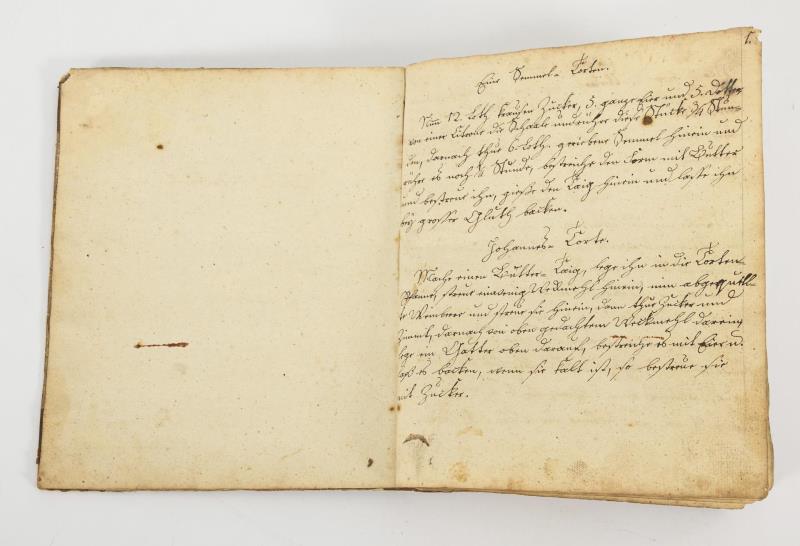 1.
Eine Semmel-Torten.
Nimm 12. Loth Zucker, 5. ganze Eier und 5. Dotter
von einer Citrone die Schaale und rühre diese Stücke 3/4 Stun-
den, darnach thue 6. Loth geriebene Semmel hinein und
rühre es noch 1/4 Stunde, bestreiche den Form mit Butter
und bestreue ihn, gieße den Taig hinein und lasse ihn
bey grosser Gluth backen.
Johannes-Torte.
Mache einen Butter-Taig, lege ihn in die Torten-
Pfanne, streue ein wenig Weckmehl hinein, nim
Weinbeere und streue sie hinein, dann thue Zucker und
Zimmt, darnach von oben gedachtem Weckmehl darein
lege ein Gatter oben darauf, bestreiche es mit Eier u.
laß es backen, wenn sie kalt ist, so bestreue sie
mit Zucker.